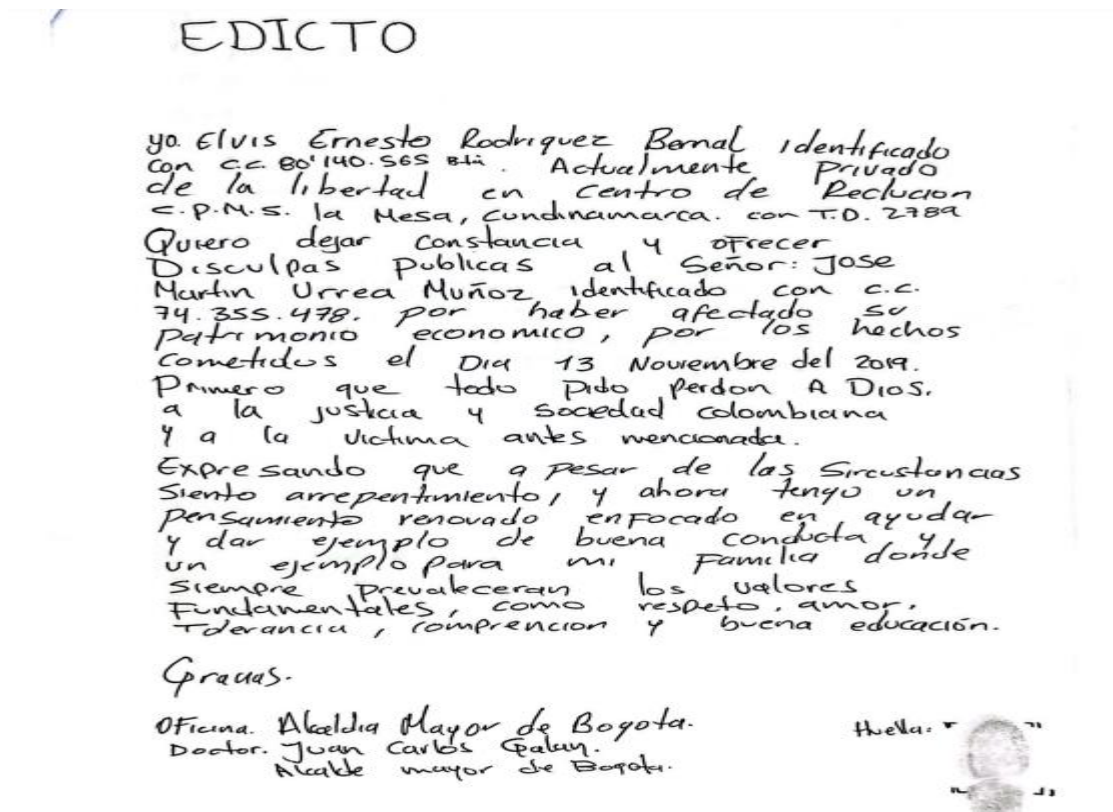 EDICTO
yo. Elvis Ernesto Rodriguez Bernal identificado
con c.c. 80'140.565 Bta. Actualmente Privado
de la libertad en centro de Reclucion
C.P.M.S. la Mesa, cundinamarca. con T.D. 2789
Quiero dejar constancia y ofrecer
Disculpas Publicas al Señor: Jose
Martin Urrea Muñoz, identificado con c.c.
74.355.478. por haber afectado su
patrimonio economico, por los hechos
cometidos el Dia 13 Noviembre del 2019.
Primero que todo pido perdon A Dios.
a la justicia y sociedad colombiana
y a la victima antes mencionada.
Expresando que a pesar de las Sircustancias
Siento arrepentimiento, y ahora tengo un
pensamiento renovado enfocado en ayudar
y dar ejemplo de buena conducta y
un ejemplo para mi Familia donde
siempre prevaleceran los valores
Fundamentales, como respeto, amor,
Tolerancia, comprencion y buena educación.
Gracias.
Oficina. Alcaldia Mayor de Bogota.
Doctor. Juan Carlos Galan.
Alcalde mayor de Bogota.
Huella: